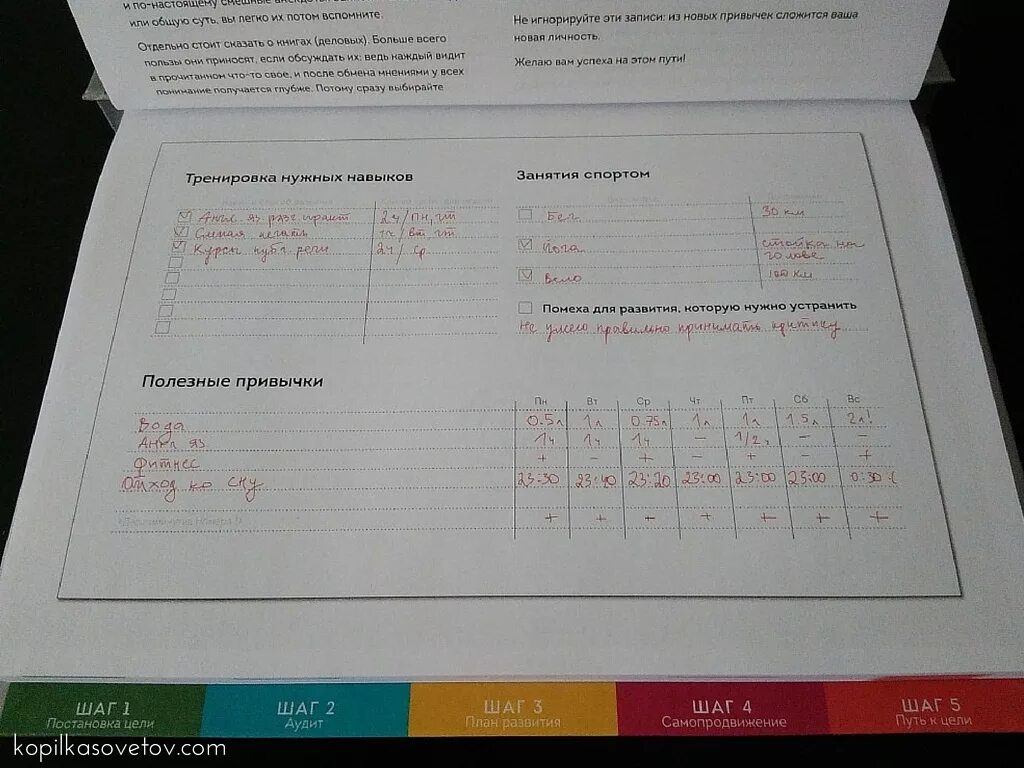 и по-настоящему смешные
или общую суть, вы легко их потом вспомните.
Отдельно стоит сказать о книгах (деловых). Больше всего
пользы они приносят, если обсуждать их: ведь каждый видит
в прочитанном что-то свое, и после обмена мнениями у всех
понимание получается глубже. Потому сразу выбирайте
Не игнорируйте эти записи: из новых привычек сложится ваша
новая личность.
Желаю вам успеха на этом пути!
Тренировка нужных навыков
Англ. яз. разг. практ 2ч/ пн, чт
Слепая печать 1ч/ вт, чт
Курсы публ речи 2ч/ ср
Занятия спортом
Бег 30 км
Йога стойка на
голове
Вело 100 км
Помеха для развития, которую нужно устранить
Не умею правильно принимать критику
Полезные привычки
Пн Вт Ср Чт Пт Сб Вс
Вода 0.5л 1л 0.75л 1л 1л 1.5л 2л!
Англ яз 1ч 1ч 1ч – 1/2ч – –
Фитнес + – + – + – +
Отход ко сну 23:30 23:40 23:20 23:00 23:00 23:00 0:30 :(
+ + – + + + +
ШАГ 1
Постановка цели
ШАГ 2
Аудит
ШАГ 3
План развития
ШАГ 4
Самопродвижение
ШАГ 5
Путь к цели
kopilkasovetov.com